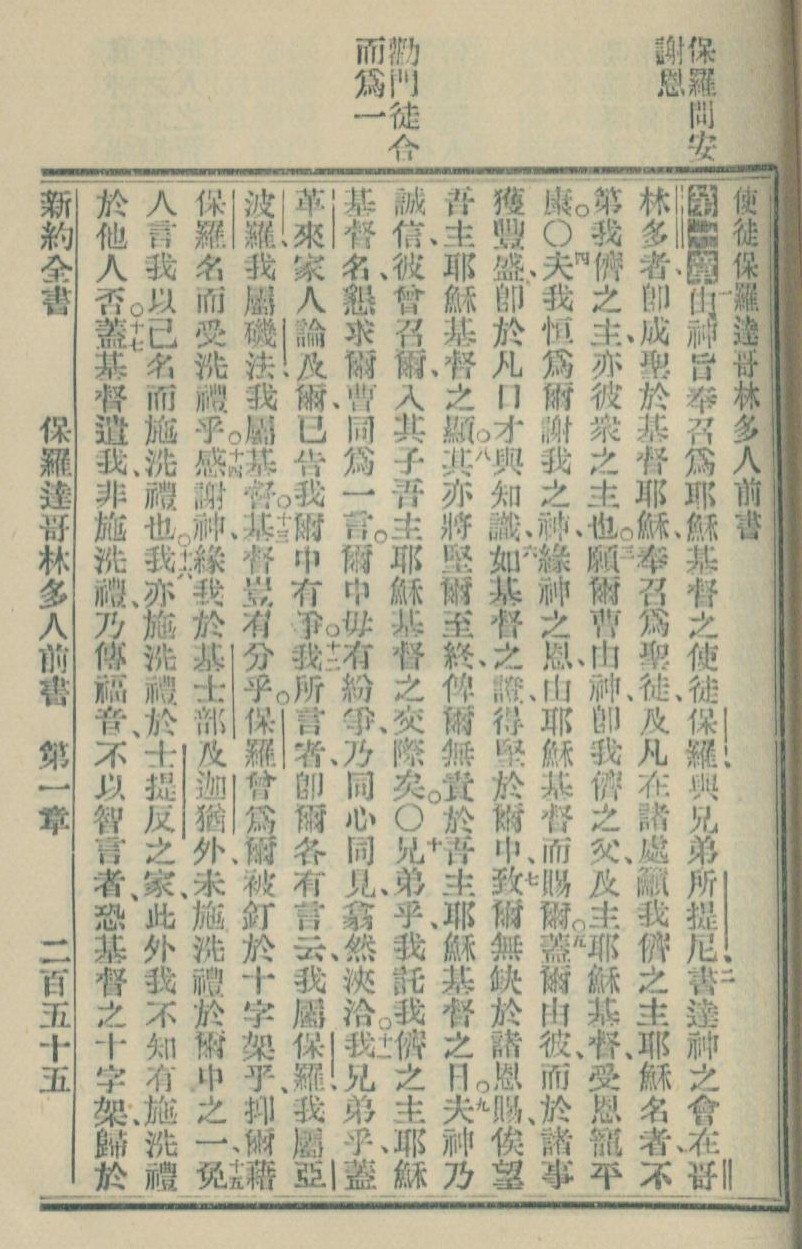 保羅問安
謝恩
勸門徒合
而爲一
使徒保羅達哥林多人前書
一由神旨奉召爲耶穌基督之使徒保羅、與兄弟所提尼、二書達神之會在哥
林多者、卽成聖於基督耶穌、奉召爲聖徒、及凡在諸處籲我儕之主耶穌名者、不
第我儕之主、亦彼衆之主也。三願爾曹由神、卽我儕之父、及主耶穌基督、受恩寵平
康。〇四夫我恒爲爾謝我之神、緣神之恩、由耶穌基督而賜爾。五蓋爾由彼、而於諸事
獲豐盛、卽於凡口才與知識、六如基督之證、得堅於爾中、七致爾無缺於諸恩賜、俟望
吾主耶穌基督之顯。八其亦將堅爾至終、俾爾無責於吾主耶穌基督之日。九夫神乃
誠信、彼曾召爾、入其子吾主耶穌基督之交際矣。〇十兄弟乎、我託我儕之主耶穌
基督名、懇求爾曹同爲一言。爾中毋有紛爭、乃同心同見、翕然浹洽。十一我兄弟乎、蓋
革來家人論及爾、已告我爾中有爭。十二我所言者、卽爾各有言云、我屬保羅、我屬亞
波羅、我屬磯法、我屬基督。十三基督豈有分乎。保羅曾爲爾被釘於十字架乎、抑爾藉
保羅名而受洗禮乎。十四感謝神、緣我於基士部及迦猶外、未施洗禮於爾中之一、十五免
人言我以己名而施洗禮也。十六我亦施洗禮於士提反之家、此外我不知有施洗禮
於他人否。十七蓋基督遣我、非施洗禮、乃傳福音、不以智言者、恐基督之十字架、歸於
新約全書 保羅達哥林多人前書 第一章 二百五十五